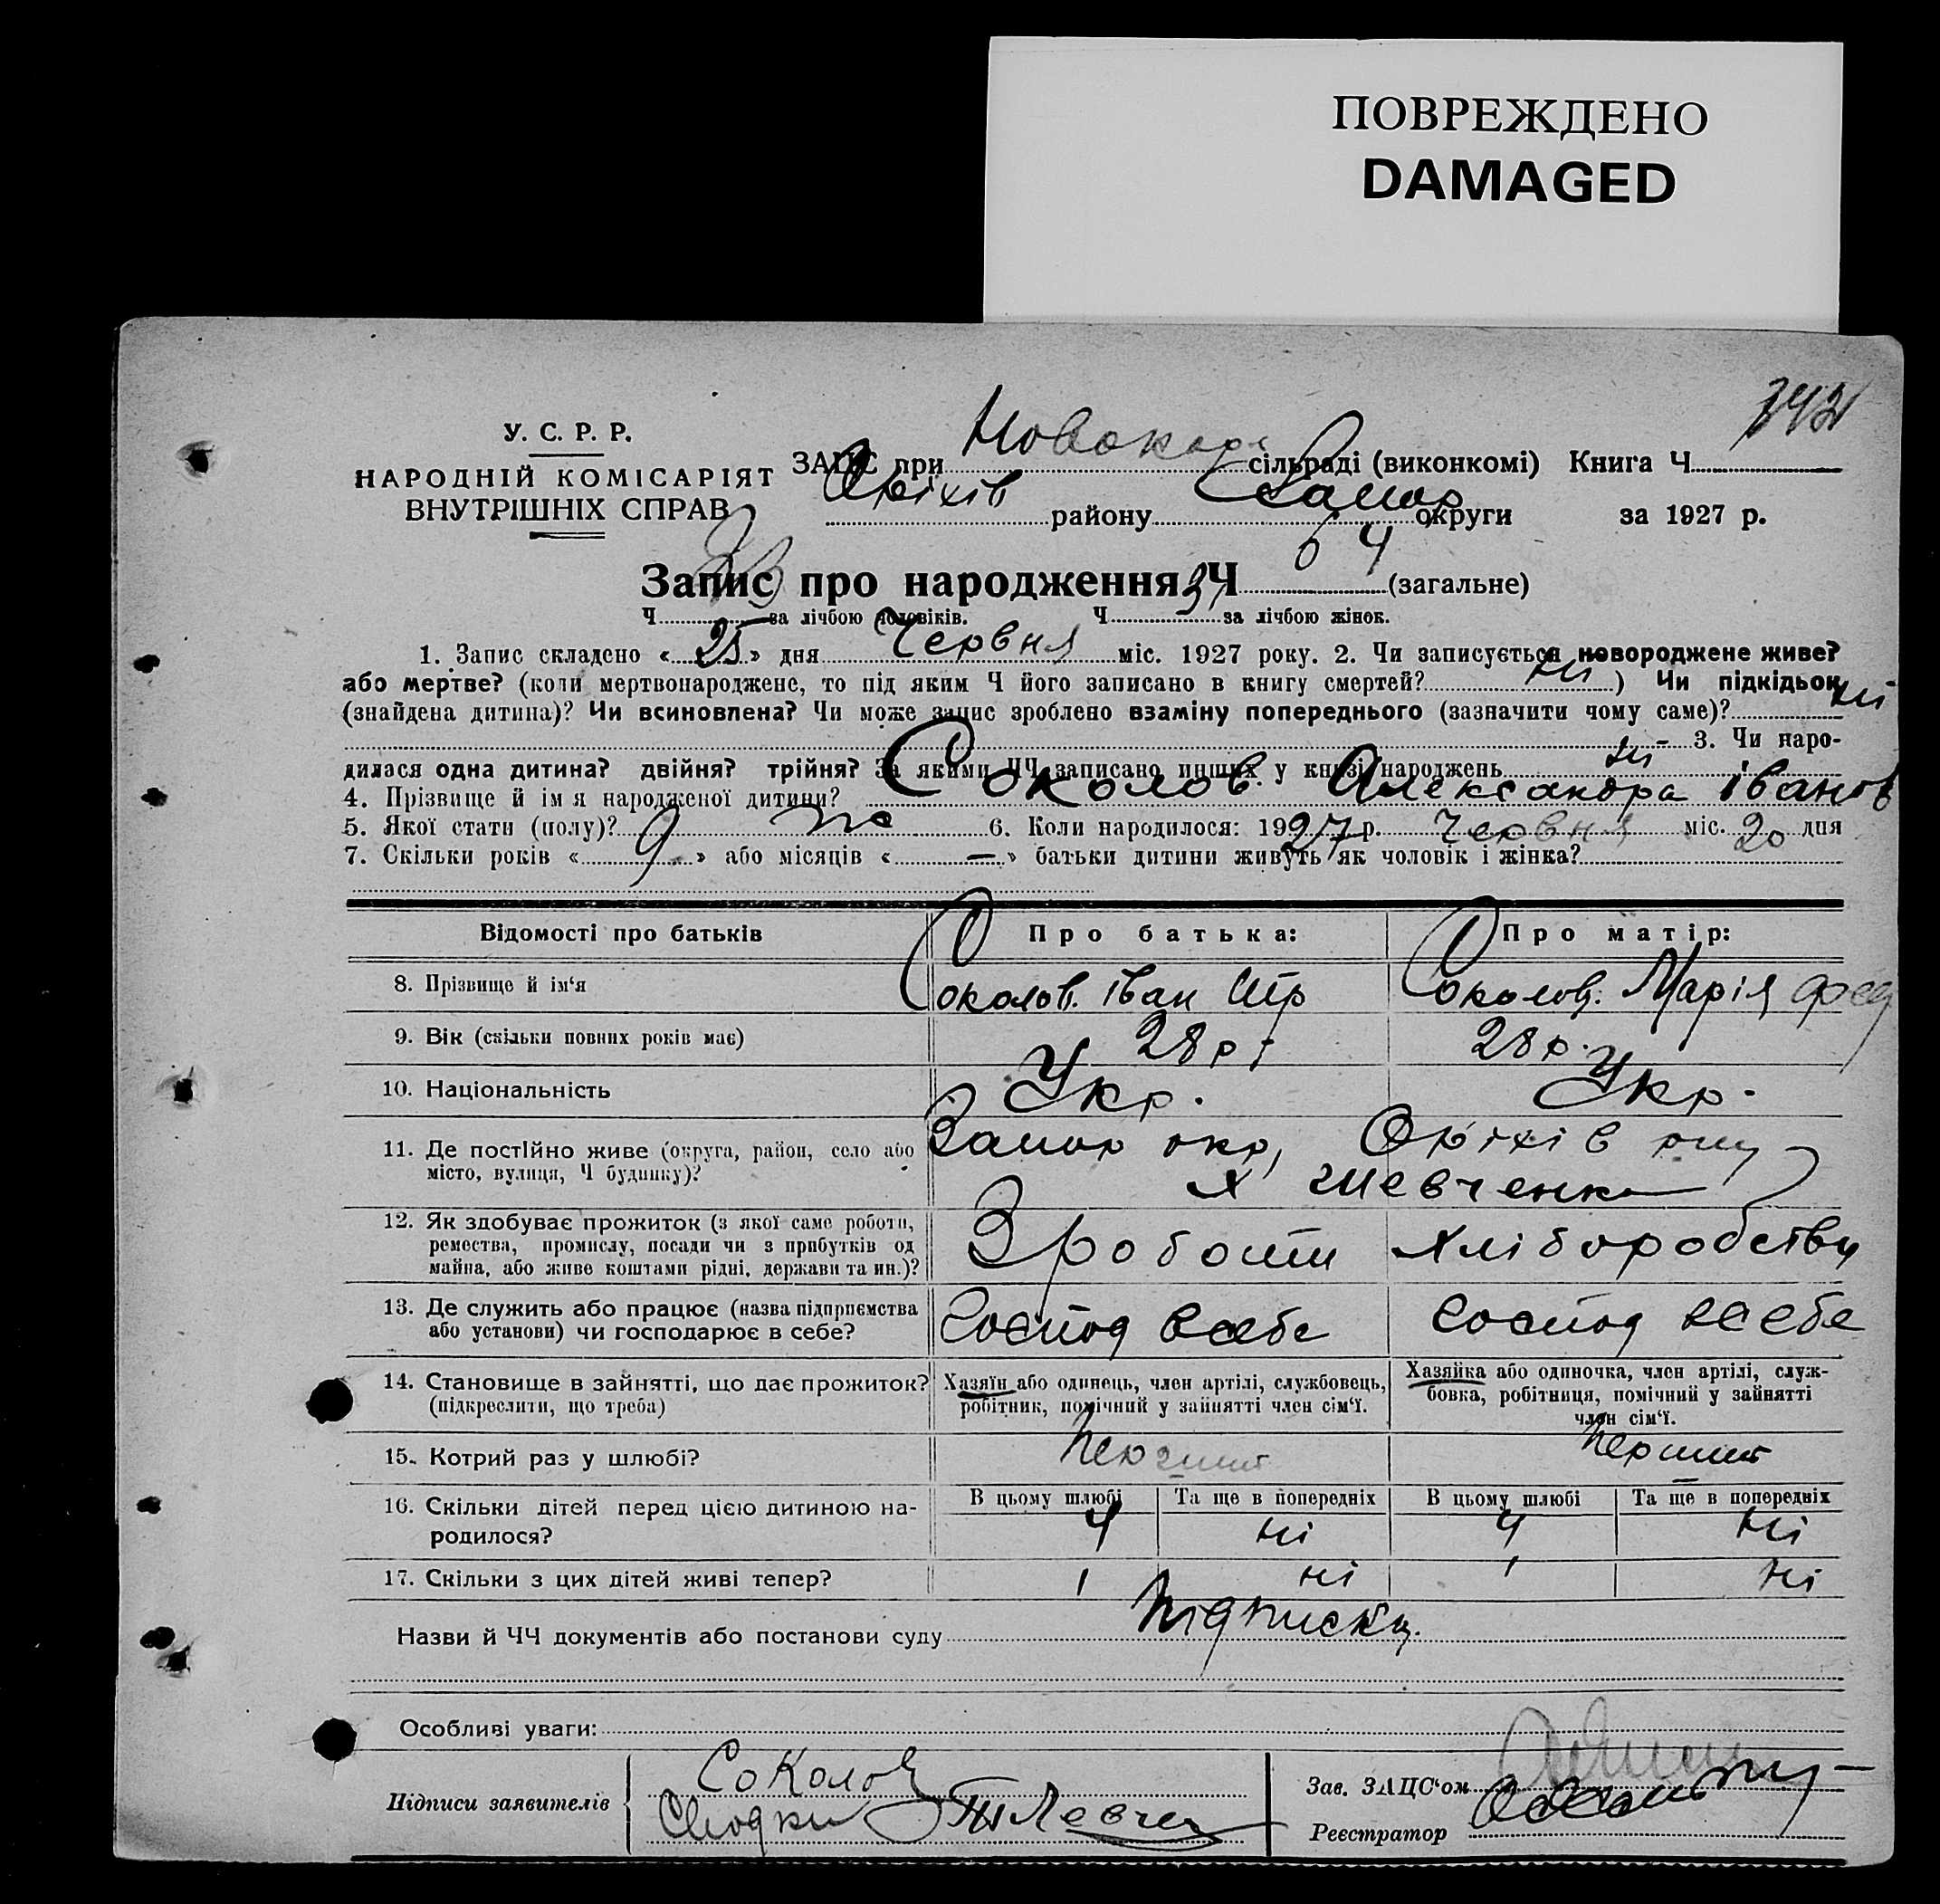 ПОВРЕЖДЕНО
DAMAGED
У. С. Р. Р.
НАРОДНІЙ КОМІСАРІЯТ
ВНУТРІШНІХ СПРАВ
ЗАПИС при сільраді (виконкомі) Книга Ч
Оріхів району Запор округи за 1927 р.
Запис про народження Ч 64 (загальне)
Ч за лічбою чоловіків. Ч 31 за лічбою жінок.
1. Запис складено « 25 » дня Червня міс. 1927 року. 2. Чи записується новороджене живе?
або мертве? (коли мертвонароджене, то під яким Ч його записано в книгу смертей? ні ) Чи підкідьок ні
(знайдена дитина)? Чи всиновлена? Чи може запис зроблено взаміну попереднього (зазначити чому саме)?
- 3. Чи наро-
дилася одна дитина? двійня? трійня? За якими ЧЧ записано инших у книзі народжень ні
4. Прізвище й ім я народженої дитини? Соколов. Александра Іванов
5. Якої стати (полу)? 6. Коли народилося: 1927 р. Червня міс. 20 дня
7. Скільки років « 9 » або місяців « — » батьки дитини живуть як чоловік і жінка?
Відомості про батьків Про батька: Про матір:
8. Прізвище й ім‘я Соколов. Іван Соколов. Марія Фед
9. Вік (скільки повних років має) 28 р. 28 р.
10. Національність Укр. Укр.
11. Де постійно живе (округа, район, село або Запор окр, Оріхів рну
місто, вулиця, Ч будинку)? х Шевченка
12. Як здобуває прожиток (з якої саме роботи, З роботи хліборобству
ремества, промислу, посади чи з прибутків од
майна, або живе коштами рідні, держави та ин.)?
13. Де служить або працює (назва підприємства Господ в себе Господ в себе
або установи) чи господарює в себе?
14. Становище в зайнятті, що дає прожиток? Хазяїн або одинець, член артілі, службовець, Хазяйка або одиночка, член артілі, служ-
(підкреслити, що треба) робітник, помічний у зайнятті член сім‘ї. бовка, робітниця, помічний у зайнятті
член сім‘ї.
15. Котрий раз у шлюбі? Перший Перший
16. Скільки дітей перед цією дитиною на- В цьому шлюбі Та ще в попередніх В цьому шлюбі Та ще в попередніх
родилося? 4 ні 4 ні
17. Скільки з цих дітей живі тепер? 1 ні 1 ні
Назви й ЧЧ документів або постанови суду Підписку.
Особливі уваги:
Підписи заявителів Соколов Зав. ЗАЦС‘ом
Реєстратор